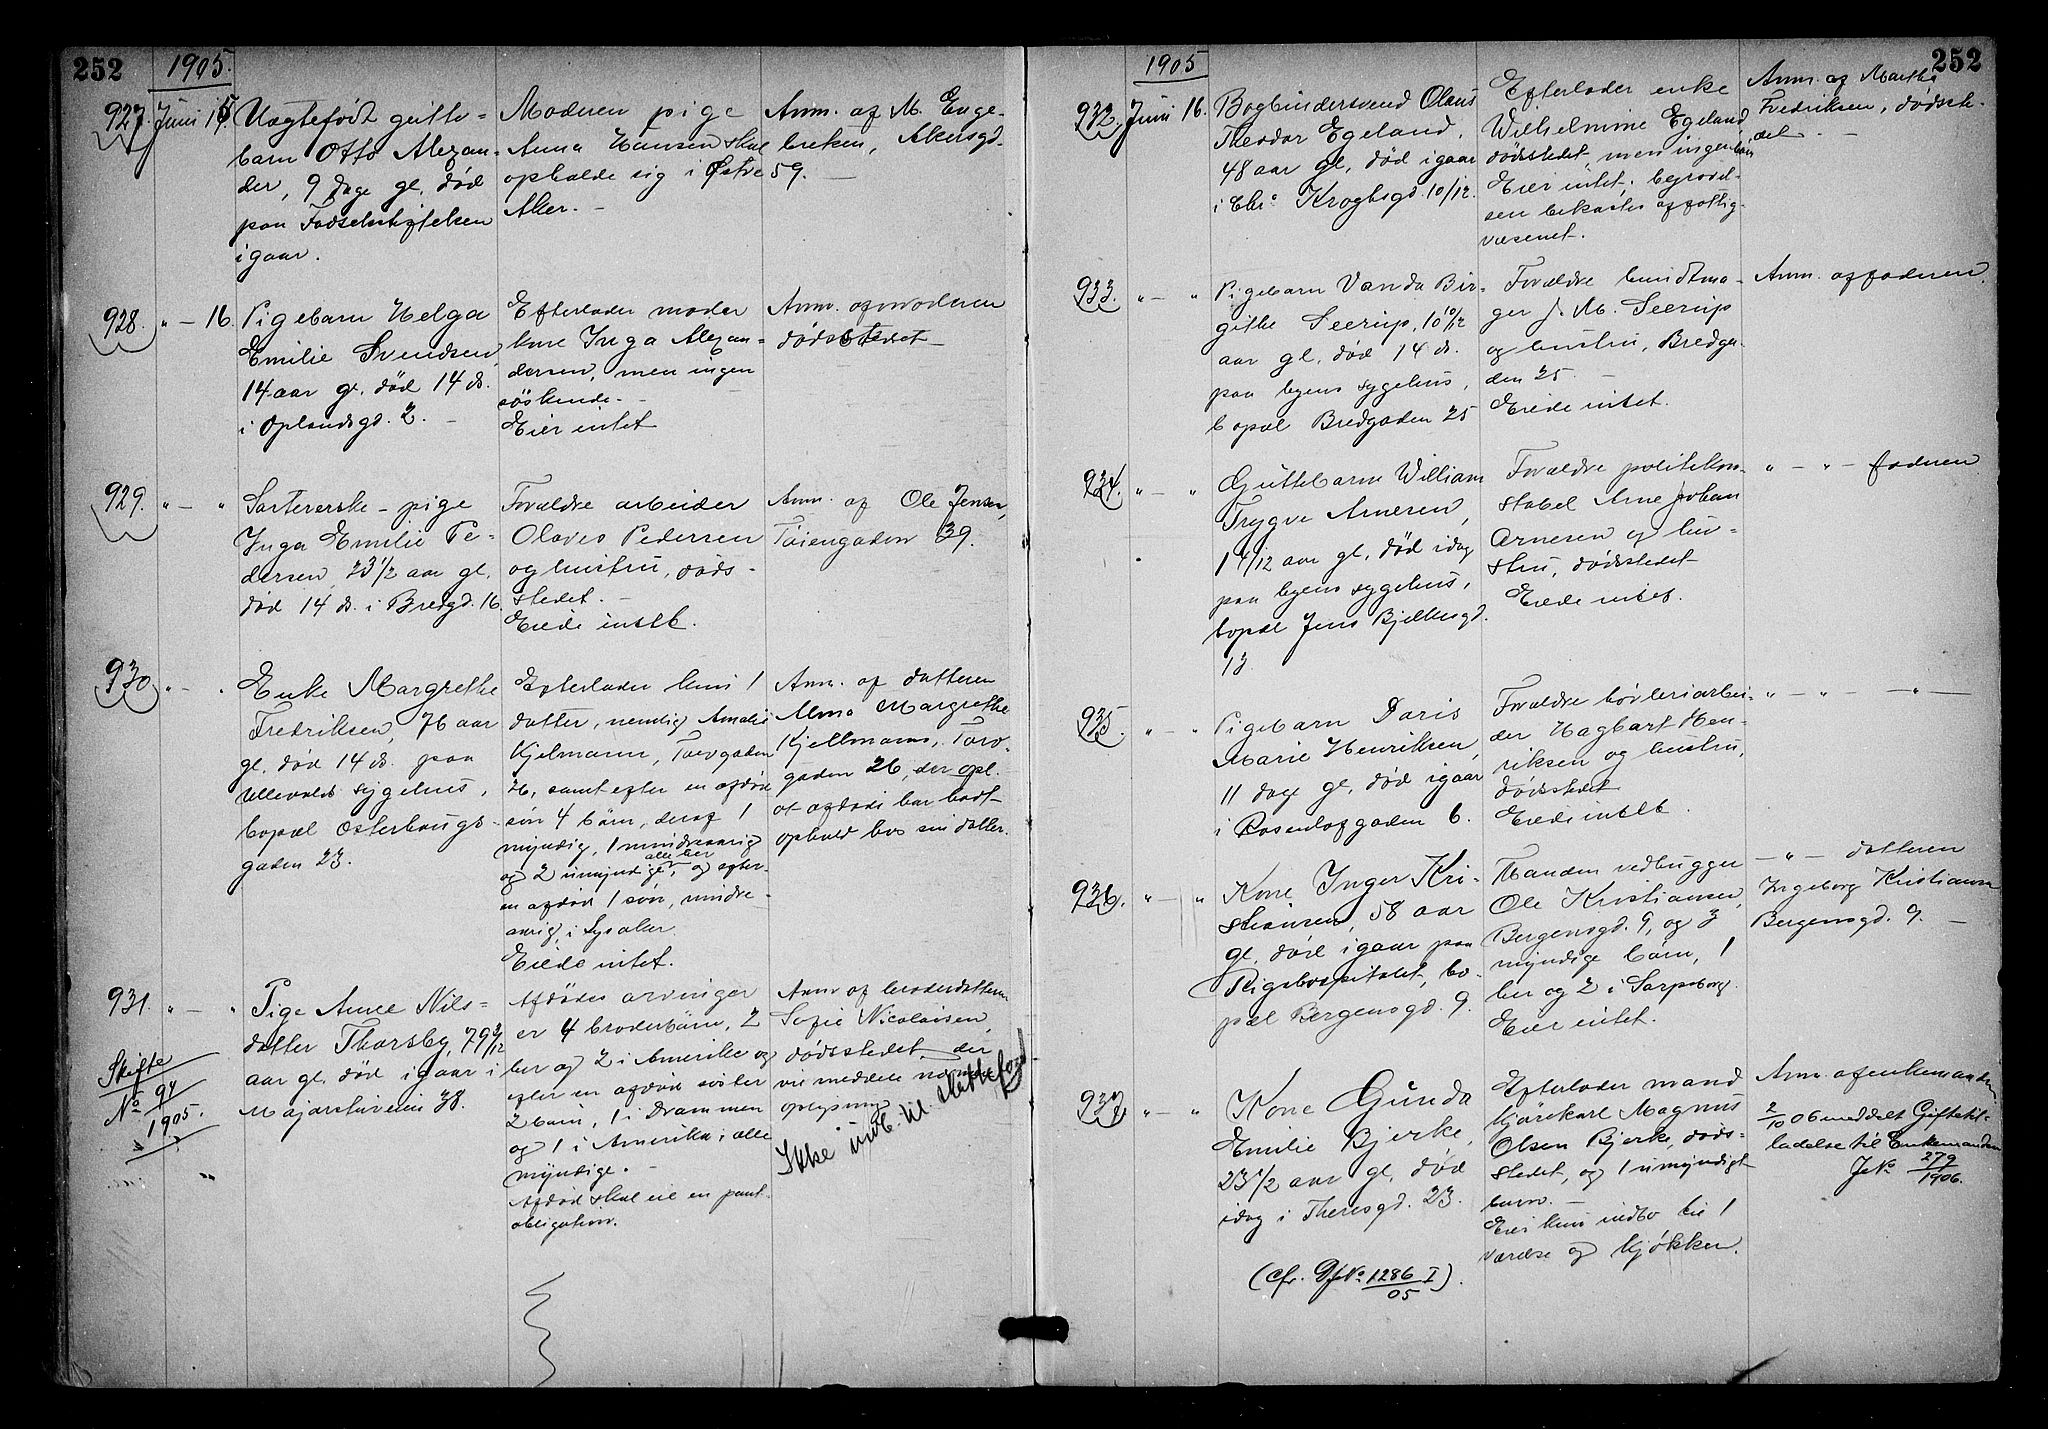 252
1905.
927. Juni 15.
Uægtefødt gutte-
barn Otto Alexan-
der, 9 dage gl. død
paa Fødselsstiftelsen
igaar.
Moderen pige
Anna Hansen skal
opholde sig i Østre
Aker. -
Anm. af M. Enge-
bretsen, Akersgd.
59. -
928. " - 16.
Pigebarn Helga
Emilie Svendsen,
14 aar gl. død 14 ds.
i Oplandsgd. 2. -
Efterlader moder
kone Inga Alexan-
dersen, men ingen
søskende. -
Eier intet
Anm. af moderen
dødsstedet -
929. " - "
Sortererske - pige
Inga Emilie Pe-
dersen, 23 1/2 aar gl.
død 14 ds. i Bredgd. 16.
Forældre arbeider
Olaves Pedersen
og hustru, døds-
stedet. -
Eiede intet.
Anm. af Ole Jensen,
Tøiengaden 39.
930. " - "
Enke Margrethe
Fredriksen, 76 aar
gl. død 14 ds. paa
Ullevolds sygehus,
bopæl Osterhaugs-
gaden 23.
Efterlader kun 1
datter, nemlig Amalie
Kjelmann, Torvgaden
26, samt efter en afdød
søn 4 børn, deraf 1
myndig, 1 mindreaarig
og 2 umyndige, alle her
og efter
en afdød 1 søn, mindre-
aarig, i Lysaker.
Eiede intet.
Anm. af datteren
Alma Margrethe
Kjellmann, Torv-
gaden 26, der opl.
at afdøde har havt
ophold hos sin datter.
931. " - "
Skifte
No 94
1905.
Pige Anne Nils-
datter Thorsby, 79 3/12
aar gl. død igaar i
Majorstuveien 38.
Afdødes arvinger
er 4 broderbørn, 2
her og 2 i Amerika og
efter en afdød søster
2 børn, 1 i Drammen
og 1 i Amerika; alle
myndige. -
Afdød skal eie en pant-
obligation.
Anm. af broderdatteren
Sofie Nicolaisen,
dødsstedet, der
vil meddele nærmere
oplysning
Ikke indb. til skiftefogd
252
1905
932. Juni 16.
Bogbindersvend Olaus
Theodor Egeland,
48 aar gl. død igaar
i Chr. Kroghsgd. 10/12.
Efterlader enke
Wilhelmine Egeland,
dødsstedet, men ingen børn
Eier intet; begravel-
sen bekostes af fattig-
væsenet.
Anm. af Martha
Fredriksen, dødste-
det -
933. " - "
Pigebarn Vanda Bir-
githe Seerup, 10 10/12
aar gl. død 14 ds.
paa byens sygehus,
bopæl Bredgaden 25
Forældre bundtma-
ger J. M. Seerup
og hustru, Bredga-
den 25 -
Eiede intet.
Anm. af faderen
934. " - "
Guttebarn William
Trygve Arnesen,
1 4/12 aar gl. død idag
paa byens sygehus,
bopæl Jens Bjelkesgd.
13.
Forældre politikon-
stabel Arne Johan
Arnesen og hu-
stru, dødsstedet
Eiede intet.
" - " - faderen
935. " - "
Pigebarn Doris
Marie Henriksen,
11 dage gl. død igaar
i Rosenhofgaden 6.
Forældre høvleriarbei-
der Hagbart Hen-
riksen og hustru,
dødsstedet
Eiede intet.
" - " - " -
936. " - "
Kone Inger Kri-
stiansen, 58 aar
gl. død igaar paa
Rigshospitalet, bo-
pæl Bergensgd. 9.
Manden vedhugger
Ole Kristiansen,
Bergensgd. 9, og 3
myndige børn, 1
her og 2 i Sarpsborg.
Eier intet.
- " - datteren
Ingeborg Kristiansen
Bergensgd. 9. -
937. " - "
Kone Gunda
Emilie Bjerke,
23 1/2 aar gl. død
idag i Theresgd. 23.
(cfr. Df No 1286 I / 05).
Efterlader mand
kjørekarl Magnus
Olsen Bjerke, døds-
stedet, og 1 umyndigt
barn. -
Eier kun indbo til 1
værelse og kjøkken.
Anm. af enkemanden
2/10 06 meddelt Giftetil-
ladelse til Enkemanden
J No 279
1906.